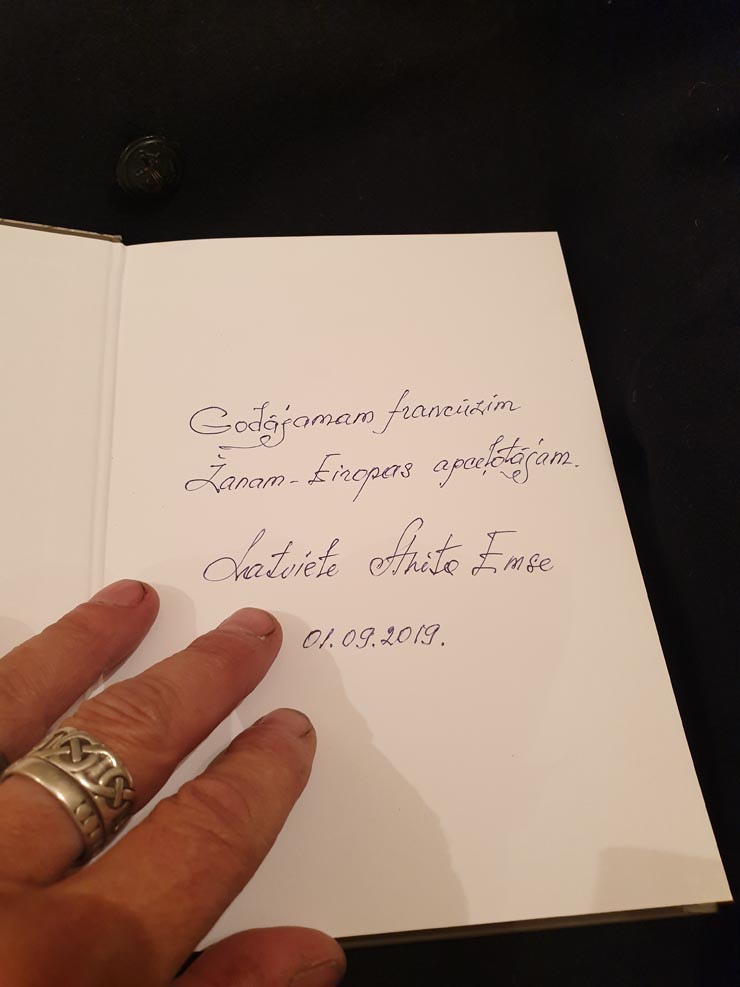 Godājamam francūzim
Žanam - Eiropas apceļotājam.
Latviete Anita Emse
01.09.2019.